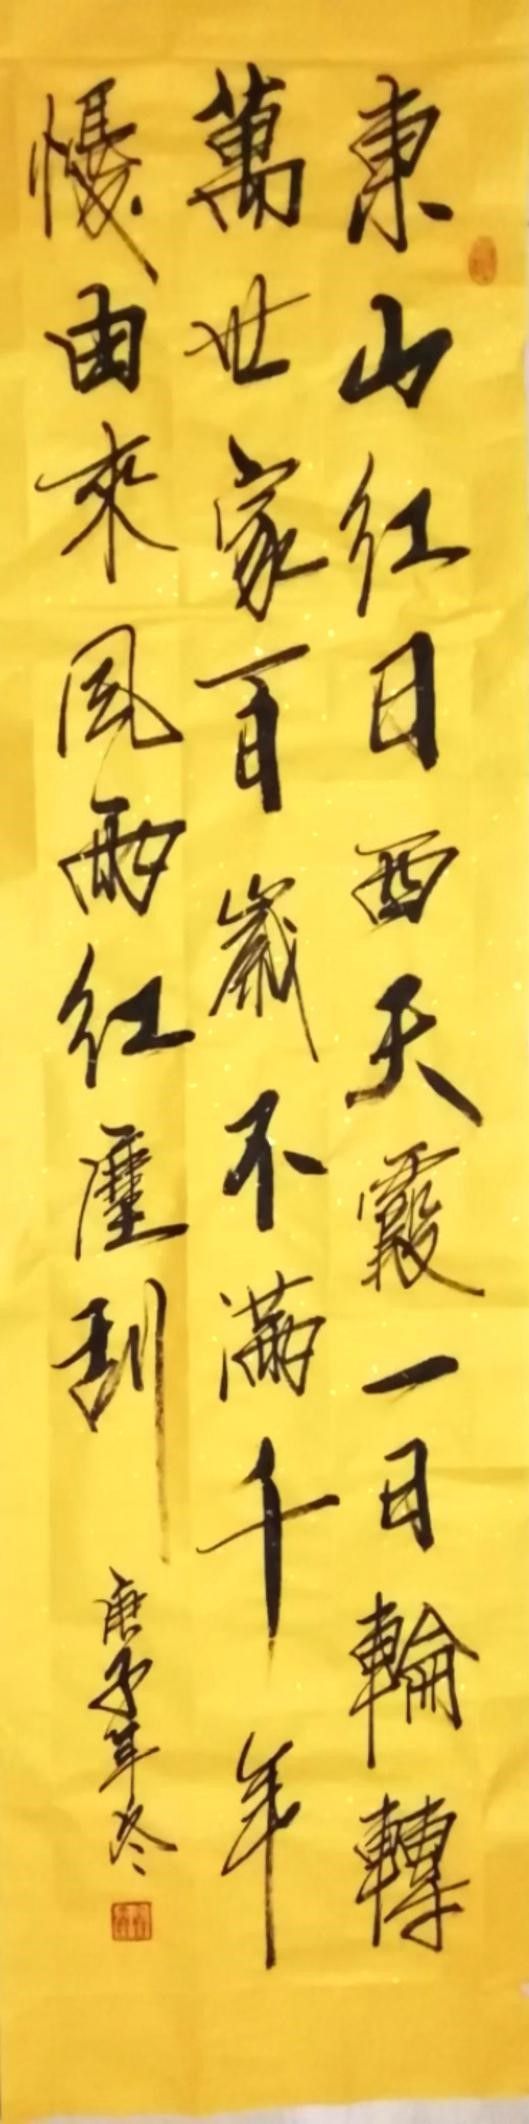 東山红日西天霞一日輪轉
萬世家百歲不滿千年
慢由來風雨红塵刮
庚子年冬